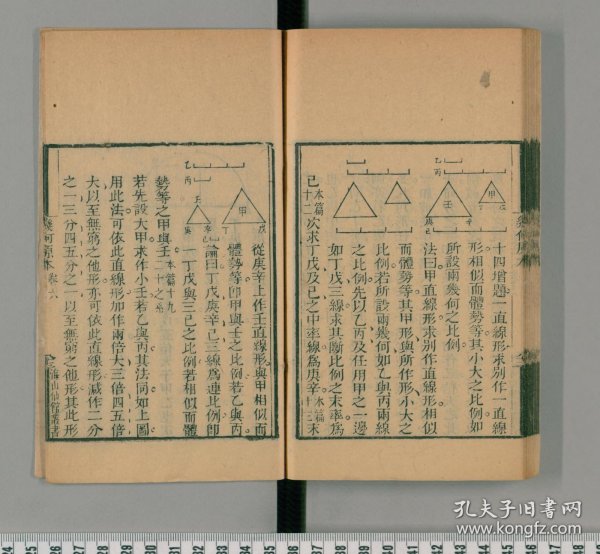 十四增題一直線形求別作一直線
形相似而體勢等其小大之比例如
所設兩幾何之比例
法曰甲直線形求別作直線形相似
而體勢等其甲形與所作形小大之
比例若所設兩幾何如乙與丙兩線
之比例先以乙丙及任用甲之一邊
如丁戊三線求其斷比例之末率爲
己本篇十二次求丁戊及己之中率線爲庚辛本篇十三末
甲
壬
乙
丙
從庚辛上作壬直線形與甲相似而
體勢等卽甲與壬之比例若乙與丙
論曰丁戊庚辛己三線爲連比例卽
一丁戊與三己之比例若相似而體
勢等之甲與壬本篇十九二十之系
若先設大甲求作小壬若乙與丙其法同如上圖
用此法可依此直線形加作兩倍大三倍四五倍
大以至無窮之他形亦可依此直線形減作二分
之一三分四五分之一以至無窮之他形其此形
甲
壬
乙
丙
幾何原本 卷六
海山仙館叢書
孔夫子旧书网
www.kongfz.com
24 25 26 27 28 29 30 31 32 33 34 35 36 37 38 39 40 41 42 43 44 45 46 47 48